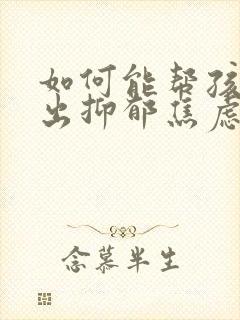 如何能帮孩
出抑郁焦虑
念慕半生